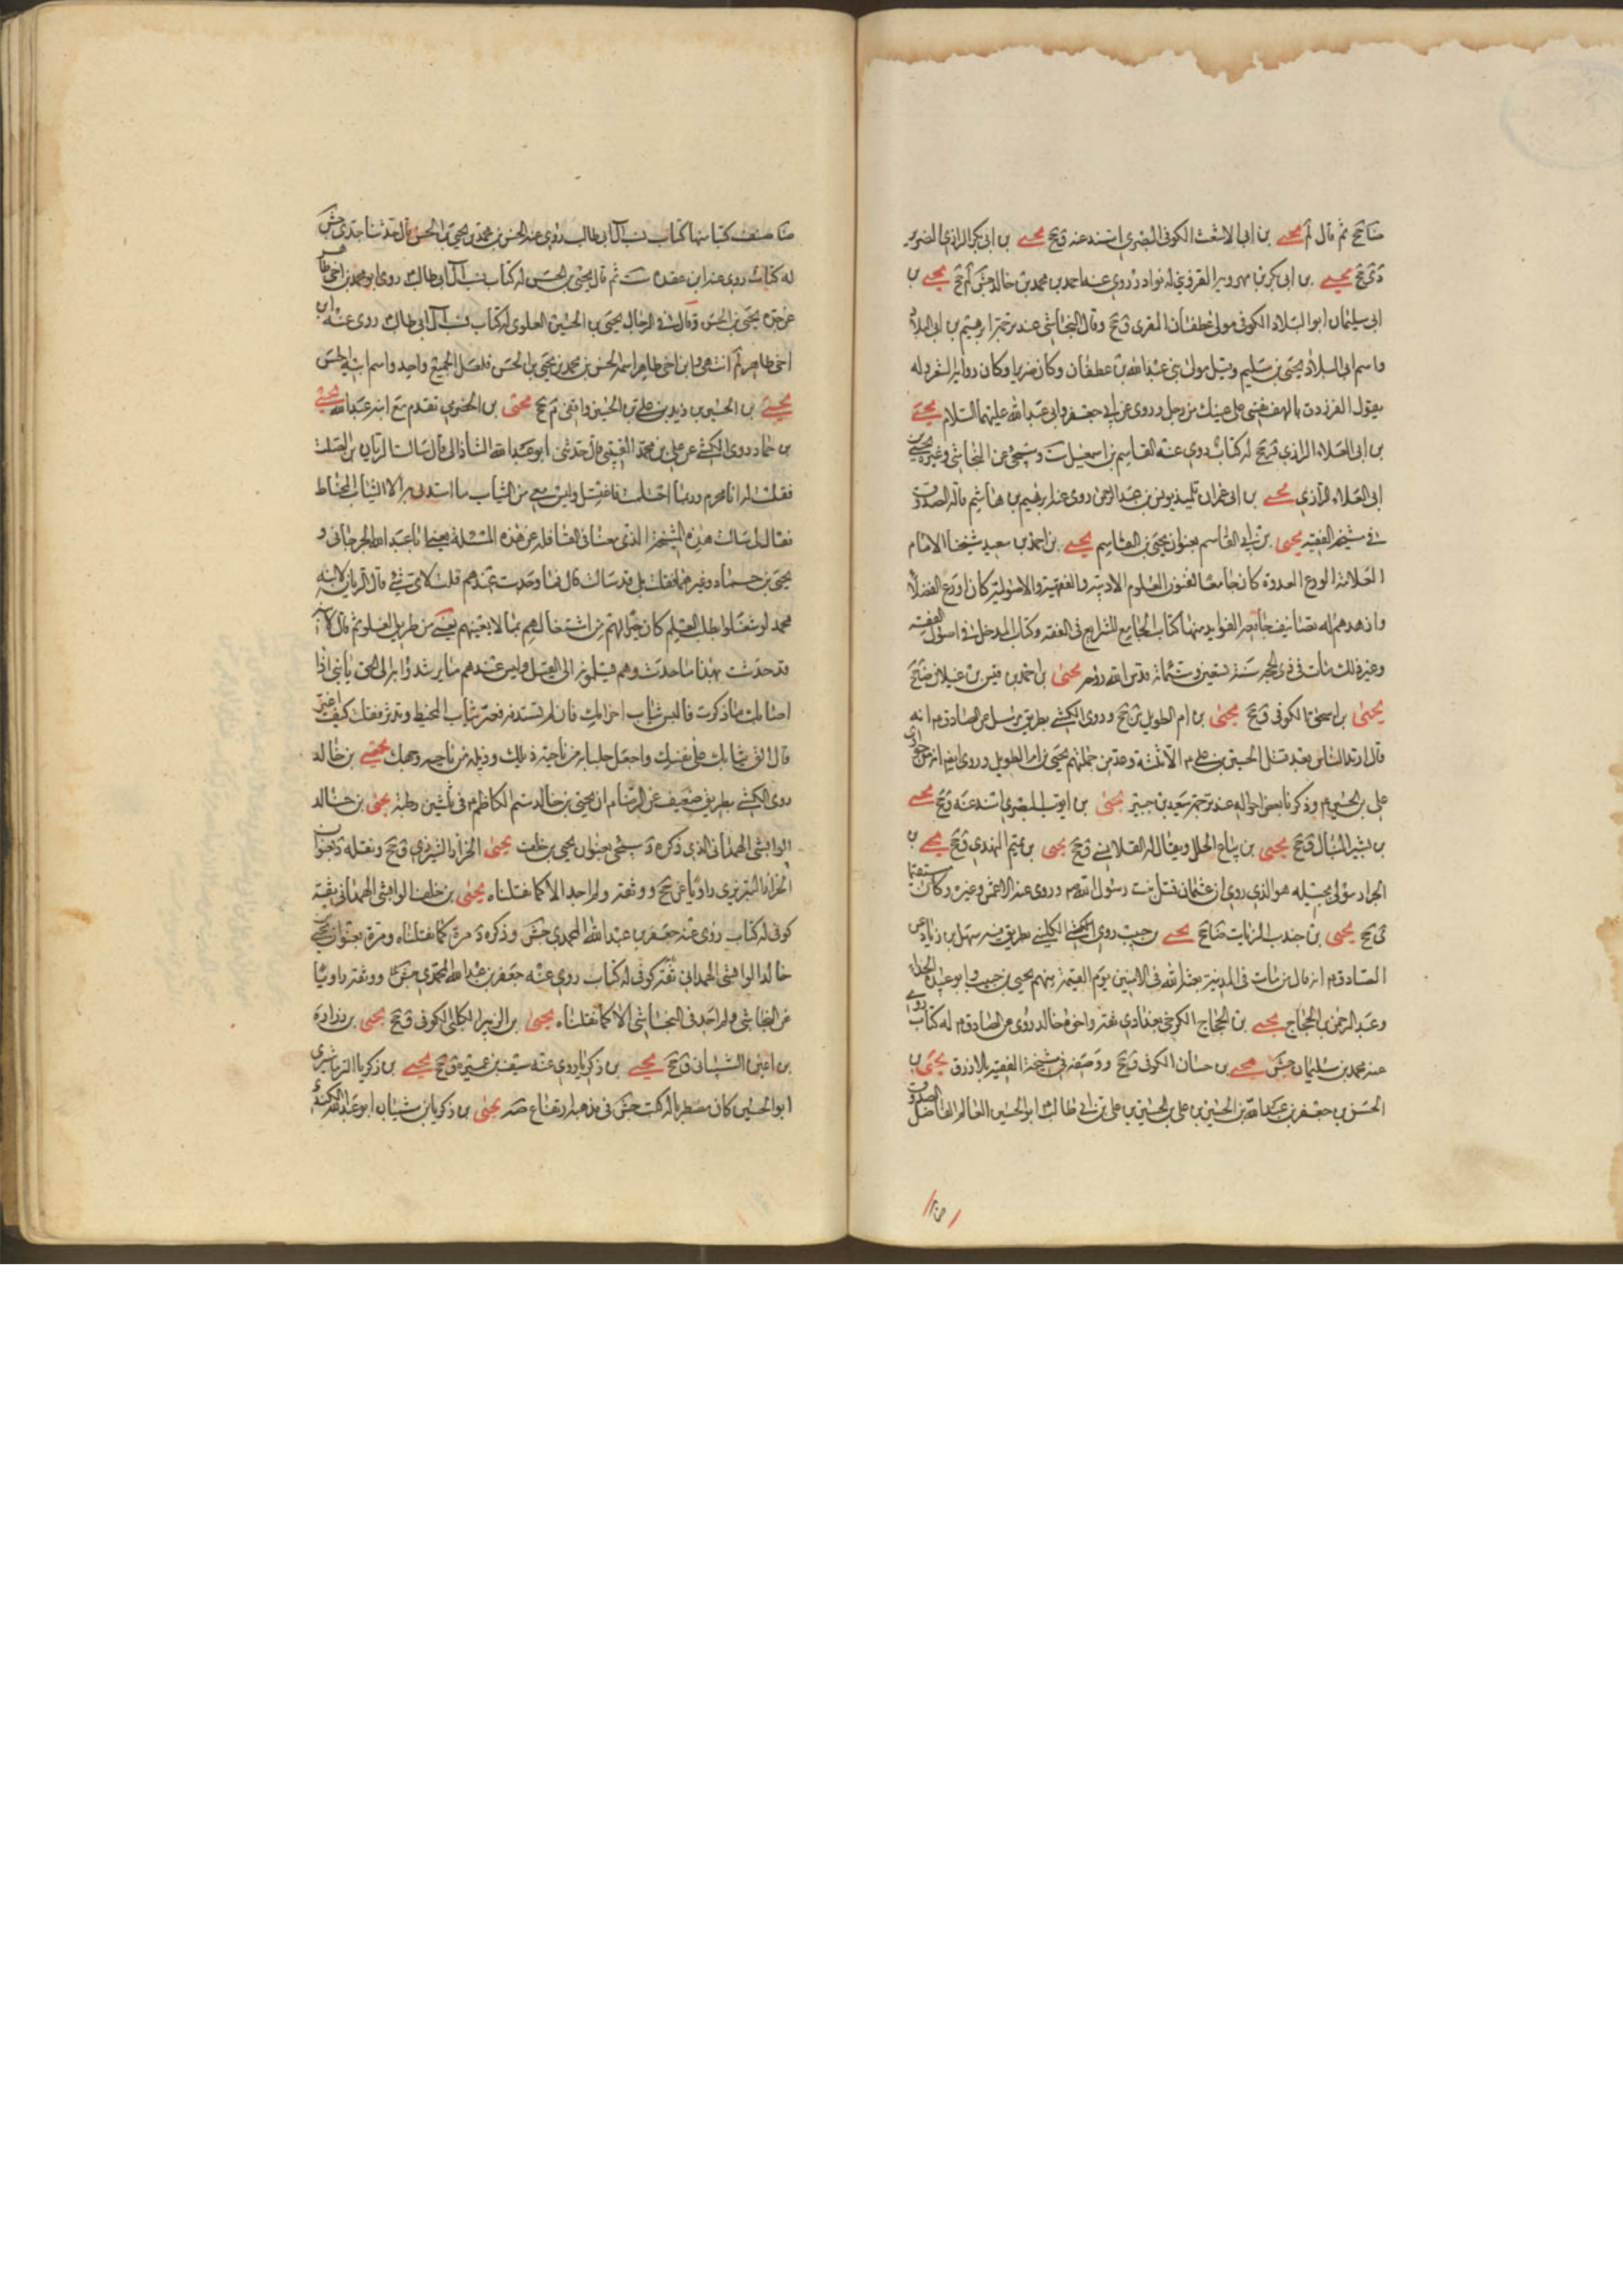 ضا جخ ثم قال لم يحيى بن ابى الاشعث الكوفى البصرى اسند عنه ق جخ يحيى بن ابى بكر الرازى الضرير
دى جخ يحيى بن ابى بكر بن مهرويه القزوينى له نوادر روى عنه احمد بن محمد بن خالد جش لم جخ يحيى بن
ابى سليمان ابو البلاد الكوفى مولى غطفان المقرى ق جخ وقال النجاشى عند ترجمة ابرهيم بن ابى البلاد
واسم ابى البلاد يحيى بن سليم وقيل مولى بنى عبد الله بن غطفان وكان ضريرا وكان راوية الشعر وله
يقول الفرزدق يا لهف نفسى على عينيك من رجل وروى عن ابى جعفر وابى عبد الله عليهما السلام يحيى
بن ابى العلاء الرازى ق جخ له كتاب روى عنه القاسم بن اسمعيل ست وسيجئ عن النجاشى وغيره يحيى بن
ابى العلاء الرازى يحيى بن ابى عمران تلميذ يونس بن عبد الرحمن روى عنه ابرهيم بن هاشم قاله الصدوق
فى مشيخة الفقيه يحيى بن ابى القاسم بعنوان يحيى بن القاسم يحيى بن احمد بن سعيد شيخنا الامام
العلامة الورع القدوة كان جامعا لفنون العلوم الادبية والفقهية والاصولية كان اورع الفضلاء
وازهدهم له تصانيف جامعة الفوايد منها كتاب الجامع للشرايع فى الفقه وكتاب المدخل فى اصول الفقه
وغير ذلك مات فى ذى الحجه سنة تسعين وستمائة قدس الله روحه يحيى بن احمد بن قيس بن غيلان ضا جخ
يحيى بن اسحق الكوفى ق جخ يحيى بن ام الطويل ين جخ وروى الكشى بطريق مرسل عن الصادق م انه
قال ارتد الناس بعد قتل الحسين بن على م الا ثلثة وعد من جملتهم يحيى بن ام الطويل وروى ايضا انه من حوارى
على بن الحسين م وذكرنا بعض احواله عند ترجمة سعيد بن جبير يحيى بن ايوب البصرى اسند عنه ق جخ يحيى
بن بشير النبال ق جخ يحيى بن بياع الحلل ويقال له القلانسى ق جخ يحيى بن تميم الهندى ق جخ يحيى بن
الجزار مولى بجيله هو الذى روى ان عثمان قتل بنت رسول الله ص وروى عنه الاعمش وغيره وكان مستقيما
ى جخ يحيى بن جندب الزيات ضا جخ يحيى بن حبيب روى الكلينى بطريق فيه سهل بن زياد عن
الصادق م انه قال من مات فى المدينة بعثه الله فى الامنين يوم القيمة منهم يحيى بن حبيب وابو عبيدة الحذاء
وعبد الرحمن بن الحجاج يحيى بن الحجاج الكرخى بغدادى ثقه واخوه خالد روى عن الصادق م له كتاب روى
عنه محمد بن سليمان جش يحيى بن حسان الكوفى ق جخ ووصفه فى مشيخة الفقيه بالازرق يحيى بن
الحسن بن جعفر بن عبيد الله بن الحسين بن على بن الحسين بن على بن ابى طالب ابو الحسين العالم الفاضل الصدوق
صنف كتبا منها كتاب نسب آل ابى طالب روى عنه الحسن بن محمد بن يحيى بن الحسن قال حدثنا جدى جش
له كتاب روى عنه ابن عقده ست ثم قال يحيى بن الحسن له كتاب نسب آل ابى طالب روى ابو محمد بن اخى طاهر
عن جده يحيى بن الحسن وقال فى الرجال يحيى بن الحسين العلوى له كتاب نسب آل ابى طالب روى عنه ابن
اخى طاهر لم انتهى وابن اخى طاهر اسمه الحسن بن محمد بن يحيى بن الحسن فلعل الجميع واحد واسم ابيه الحسن
يحيى بن الحسين بن زيد بن على بن الحسين واقفى م جخ يحيى بن الحضرمى تقدم مع ابنه عبد الله يحيى
بن حماد روى الكشى عن على بن محمد القتيبى قال حدثنى ابو عبد الله الشاذانى قال سالت الريان بن الصلت
فقلت له انا محرم وربما احتلمت فاغتسل وليس معى من الثياب ما استدفى به الا الثياب المخاط
فقال لى سالت هذه المشيخة الذى معنا فى القافلة عن هذه المسئلة يعنى ابا عبد الله الجرجانى و
يحيى بن حماد وغيرهما فقلت بلى قد سالت قال فما وجدت عندهم قلت لا شئ قال الريان لابنه
محمد لو شغلوا بطلب العلم كان خيرا لهم من اشتغالهم بما لا يعنيهم يعنى من طريق الغلو ثم قال لابنه
قد حدث بهذا ما حدث وهم يميلونه الى القتل وليس عندهم ما يرشدونه الى الحق يا بنى اذا
اصابك ما ذكرت فالبس ثياب احرامك فان لم تستدف به فغير ثيابك المخيط وتدثر فقلت كيف اغير
قال الق ثيابك على نفسك واجعل جلبابه من ناحية ذيلك وذيله من ناحيه وجهك يحيى بن خالد
روى الكشى بطريق ضعيف عن الرضا م ان يحيى بن خالد سم الكاظم م فى ثلثين رطبة يحيى بن خالد
الوابشى الهمدانى الذى ذكره د سيجئ بعنوان يحيى بن خلف يحيى الخزاز التبريزى ق جخ ونقله د بعنوان
الخزاز التبريزى راويا عن جخ ووثقه ولم اجد الا كما نقلناه يحيى بن خلف الوابشى الهمدانى ثقة
كوفى له كتاب روى عنه جعفر بن عبد الله المحمدى جش وذكره د مرة كما نقلناه ومرة بعنوان يحيى بن
خالد الوابشى الهمدانى ثقه كوفى له كتاب روى عنه جعفر بن عبد الله المحمدى جش ووثقه راويا
عن النجاشى ولم اجد فى النجاشى الا كما نقلناه يحيى بن الزبير الكلبى الكوفى ق جخ يحيى بن زرارة
بن اعين الشيبانى ق جخ يحيى بن زكريا روى عنه سيف بن عميرة ق جخ يحيى بن زكريا الترماشيرى
ابو الحسين كان مضطربا له كتب جش فى مذهبه ارتفاع صه يحيى بن زكريا بن شيبان ابو عبد الله الكندى